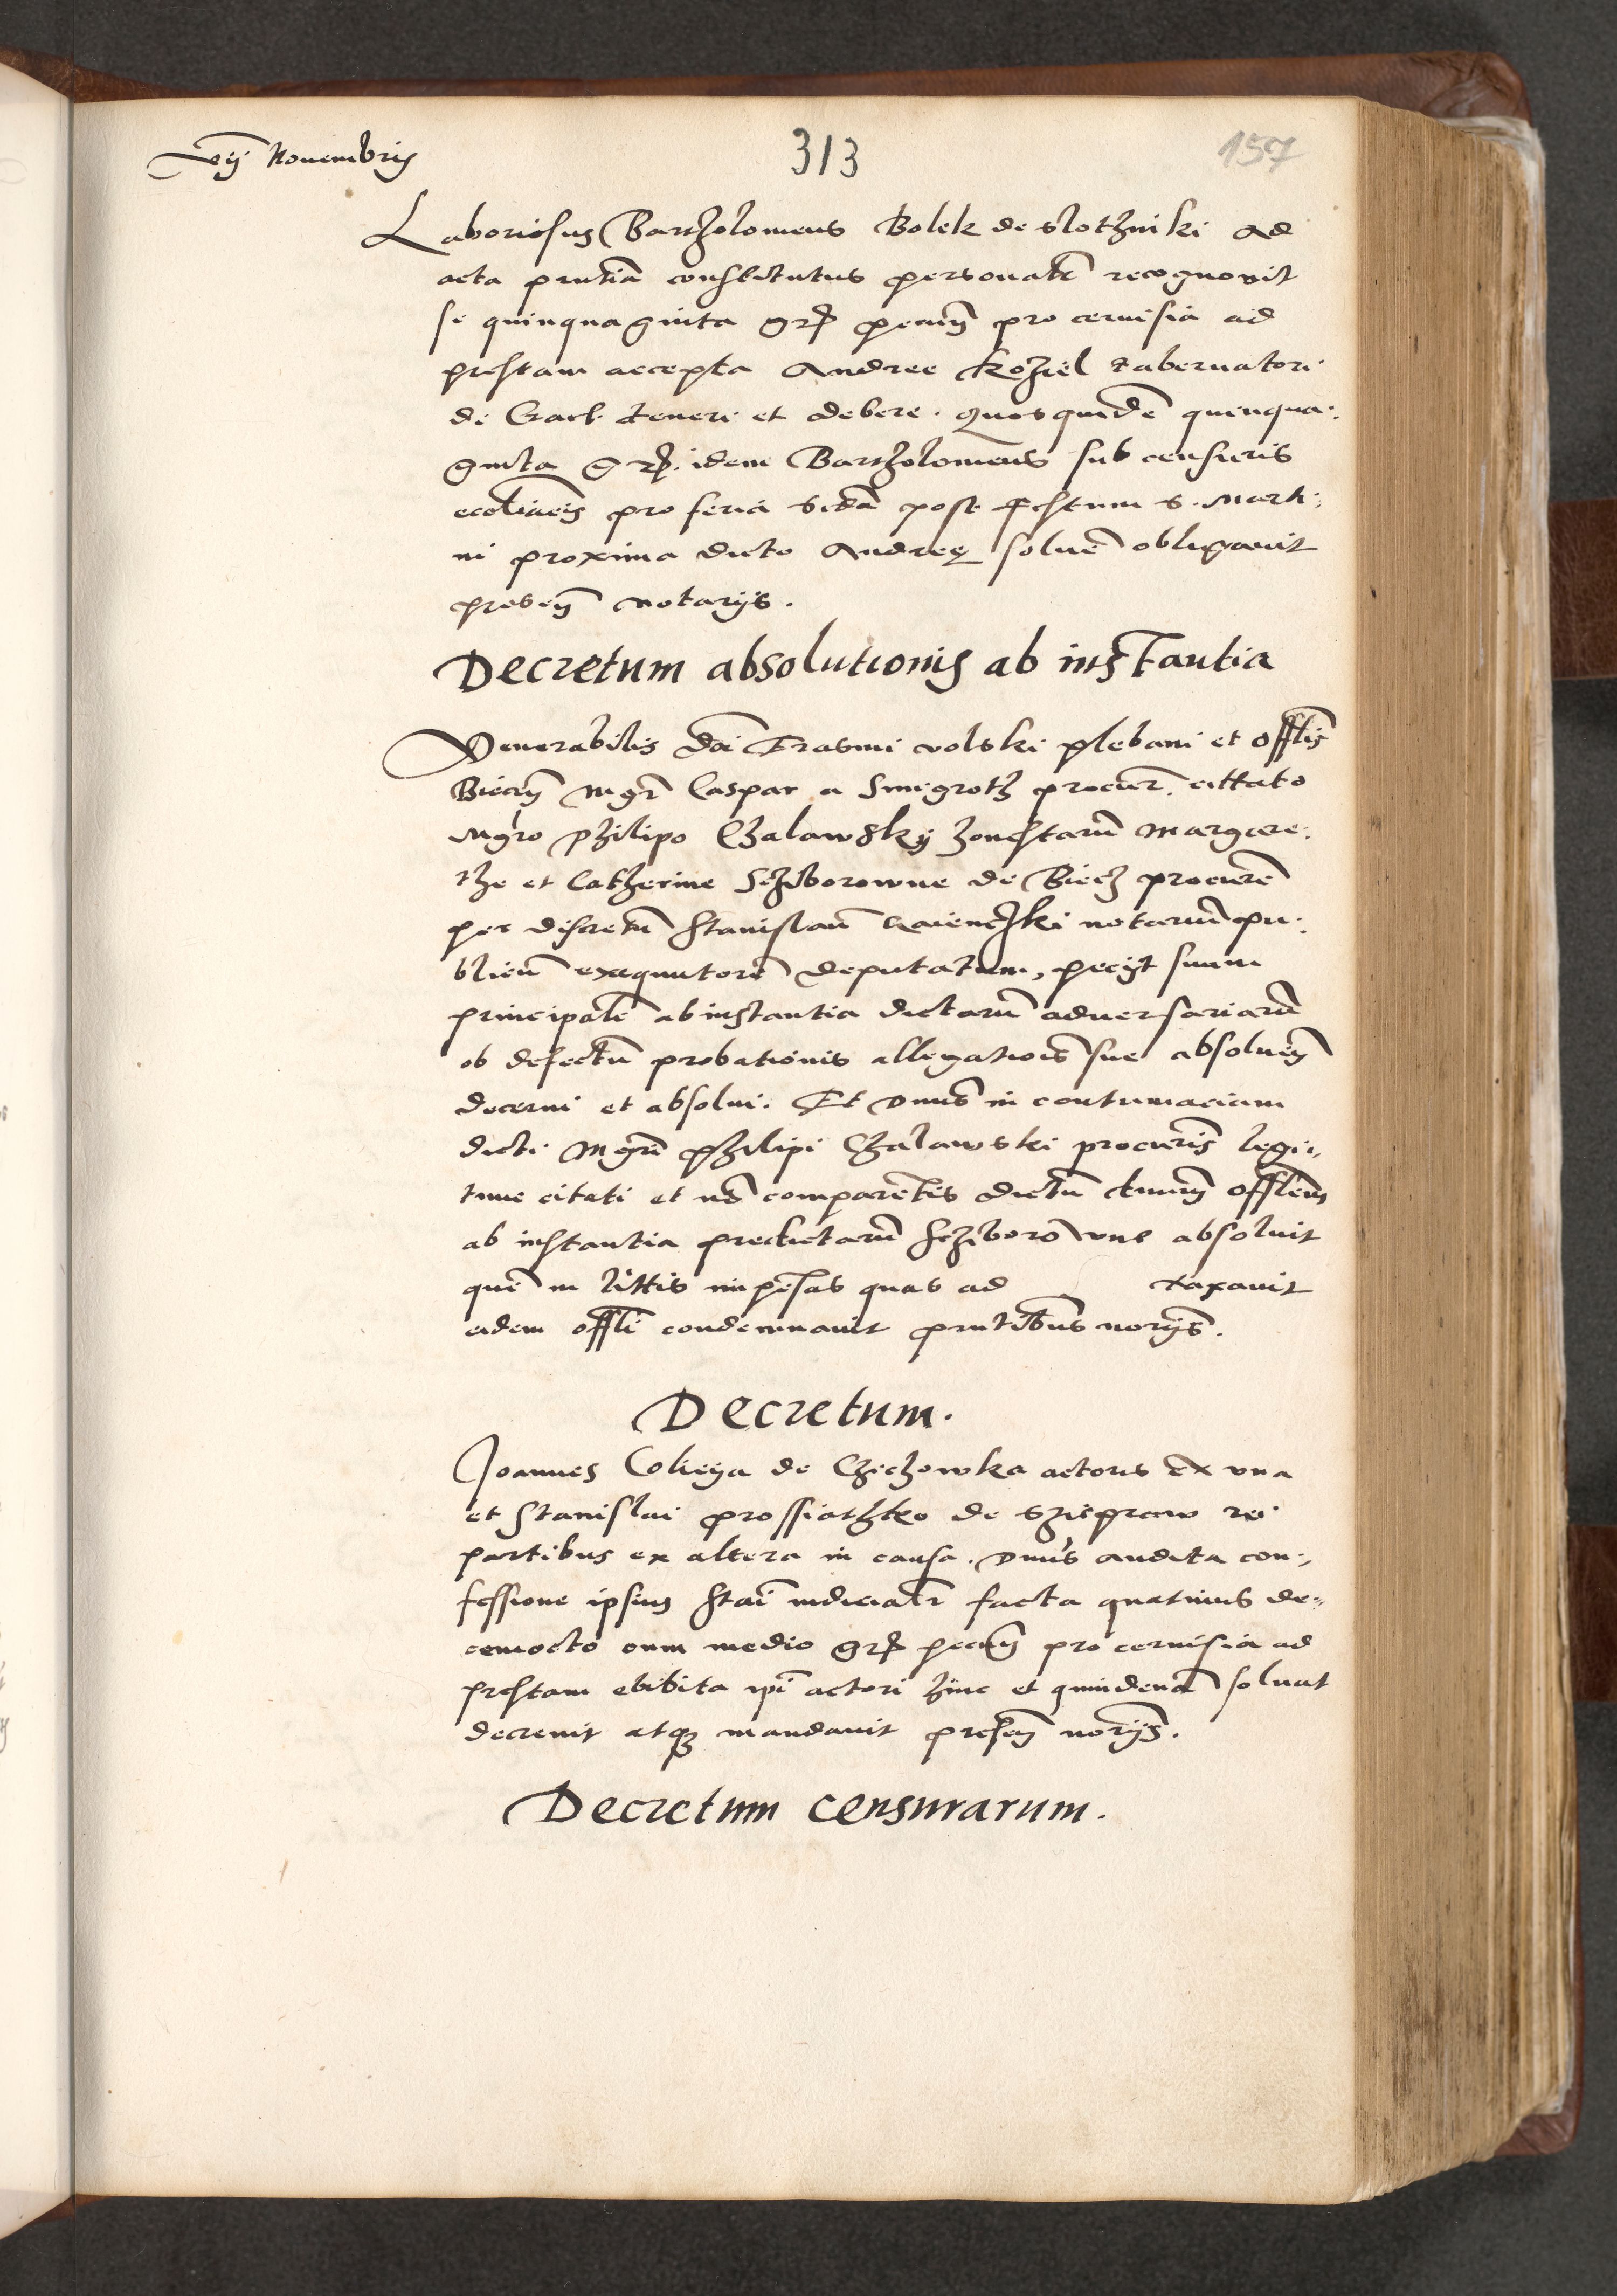 vij Novembris
313
157
Laboriosus Bartholomeus Bolek de slothniki ad
acta pntia constitutus personalr recognovit
se quinquaginta grs pecun pro cervisia ad
prestam accepta Andree Koziel tabernatori
de Gart teneri et debere. Quosquide quinqua-
ginta grs. idem Bartholomeus sub censuris
eccliacis pro feria scda post festum s. Marti-
ni proxima dicto Andreę solve obligavit
presen notarijs.
Decretum absolutionis ab instantia
Venerabilis dni Erasmi volski plebani et offlis
Biecen mgr Caspar a Smigroth procur. cittato
Mgro philipo Chalawsky honestarum Margare-
the et Catherine Schiborowne de Biecz procure
per discretum Stanislaum notarium pu-
blicum exequutore deputatum, pecijt suum
principale ab instantia dictaru adversariarum
ob defectu probationis allegatiois sue absolven
decerni et absolvi. Et dnus in contumaciam
dicti Mgri philipi Chalawski procuris legi-
time citati et no comparetis dictum dnum offlem
ab instantia predictaru Schiborowne absolvit
que in littis impesas quas ad taxavit
eidem offli condemnavit pntibus norijs.
Decretum.
Joannes Colieya de Czechowka actoris ex una
et Stanislai prossiathko de rei
partibus ex altera in causa. Dnus audita con-
fessione ipsius Stai iudicialr facta quatinus de-
cemocto cum medio grs pecun pro cervisia ad
prestam ebibita ipi actori hinc et quindena solvat
decrevit atq mandavit presen norijs.
Decretum censurarum.